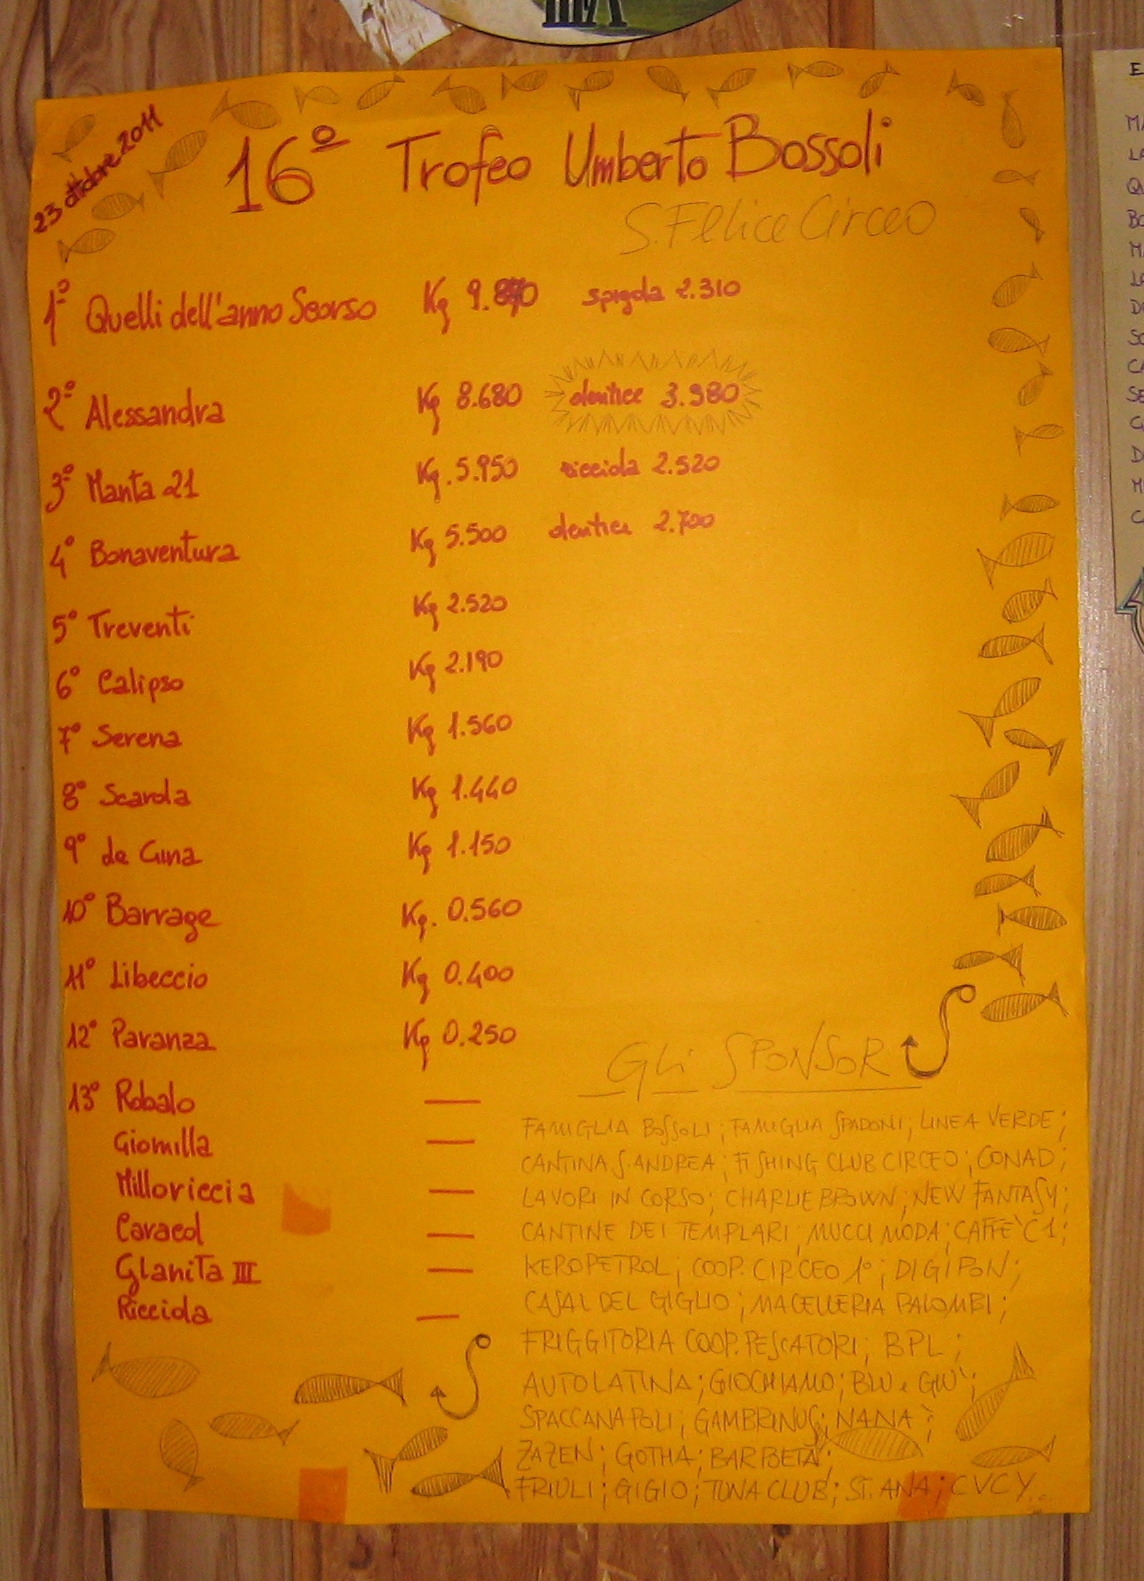 23 ottobre 2011
16º Trofeo Umberto Bossoli
S. Felice Circeo
1º Quelli dell'anno Scorso Kg 9.870 spigola 2.310
2º Alessandra Kg 8.680 dentice 3.980
3º Manta 21 Kg. 5.950 ricciola 2.520
4º Bonaventura Kg 5.500 dentice 2.700
5º Treventi Kg 2.520
6º Calipso Kg 2.190
7º Serena Kg 1.560
8º Scarola Kg 1.440
9º de Gina Kg 1.150
10º Barrage Kg. 0.560
11º Libeccio Kg 0.400
12º Paranza Kg 0.250
13º Robalo —
Giomilla —
Milloriccia —
Caracol —
Glanita III —
Ricciola —
Gli SPONSOR
FAMIGLIA BOSSOLI; FAMIGLIA SPADONI; LINEA VERDE;
CANTINA S. ANDREA; FISHING CLUB CIRCEO; CONAD;
LAVORI IN CORSO; CHARLIE BROWN; NEW FANTASY;
CANTINE DEI TEMPLARI; MUCCI MODA; CAFFE' C1;
KEROPETROL; COOP. CIRCEO 1º; DIGIPON;
CASAL DEL GIGLIO; MACELLERIA PALOMBI;
FRIGGITORIA COOP. PESCATORI; BPL;
AUTOLATINA; GIOCHIAMO; BLU e GIU';
SPACCANAPOLI; GAMBRINUS; NANA';
ZAZEN; GOTHA; BARBETA';
FRIULI; GIGIO; TUNA CLUB; ST. ANA; CVCY..